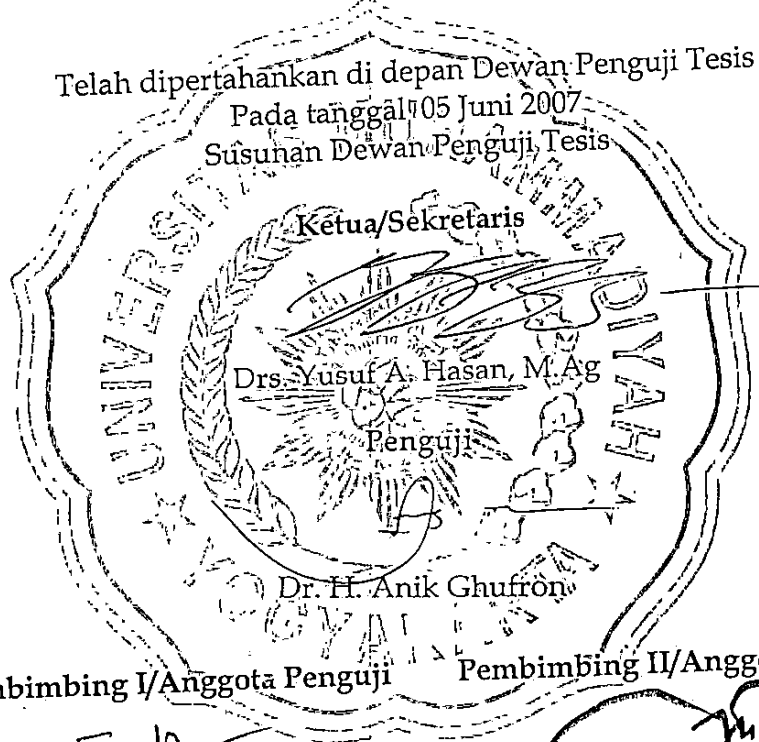 Telah dipertahankan di depan Dewan Penguji Tesis
Pada tanggal 05 Juni 2007
Susunan Dewan Penguji Tesis
Ketua/Sekretaris
Drs. Yusuf A. Hasan, M.Ag
Penguji
Dr. H. Anik Ghufron
mbimbing I/Anggota Penguji Pembimbing II/Angg
UNIVERSITAS MUHAMMADIYAH
YOGYAKARTA